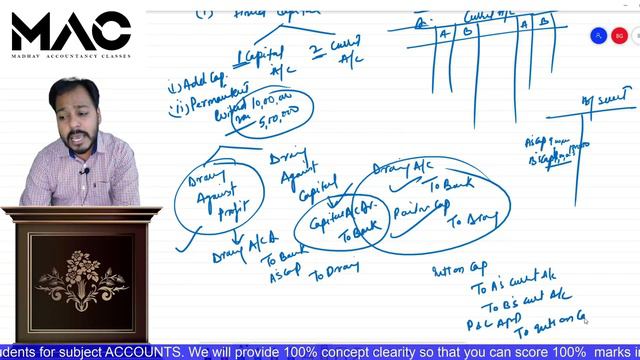 MAC
MADHAV ACCOUNTANCY CLASSES
(i) Fixed Capital
1 Capital A/C
2 Current A/C
(i) Add Cap.
(ii) Permanent
10,00,000
5,00,000
Current A/C
A B A B
B/Sheet
A's Cap
B's Cap
Drawing Against Profit
Drawing Against Capital
Drawing A/C
To Bank
A's Cap
To Drawing
Capital A/C Dr.
To Bank
Drawing A/C
To Bank
Cap
To Drawing
Int on Cap
To A's Current A/C
To B's Current A/C
P&L App
To Int on C
BG
udents for subject ACCOUNTS. We will provide 100% concept clearity so that you can score 100% marks i